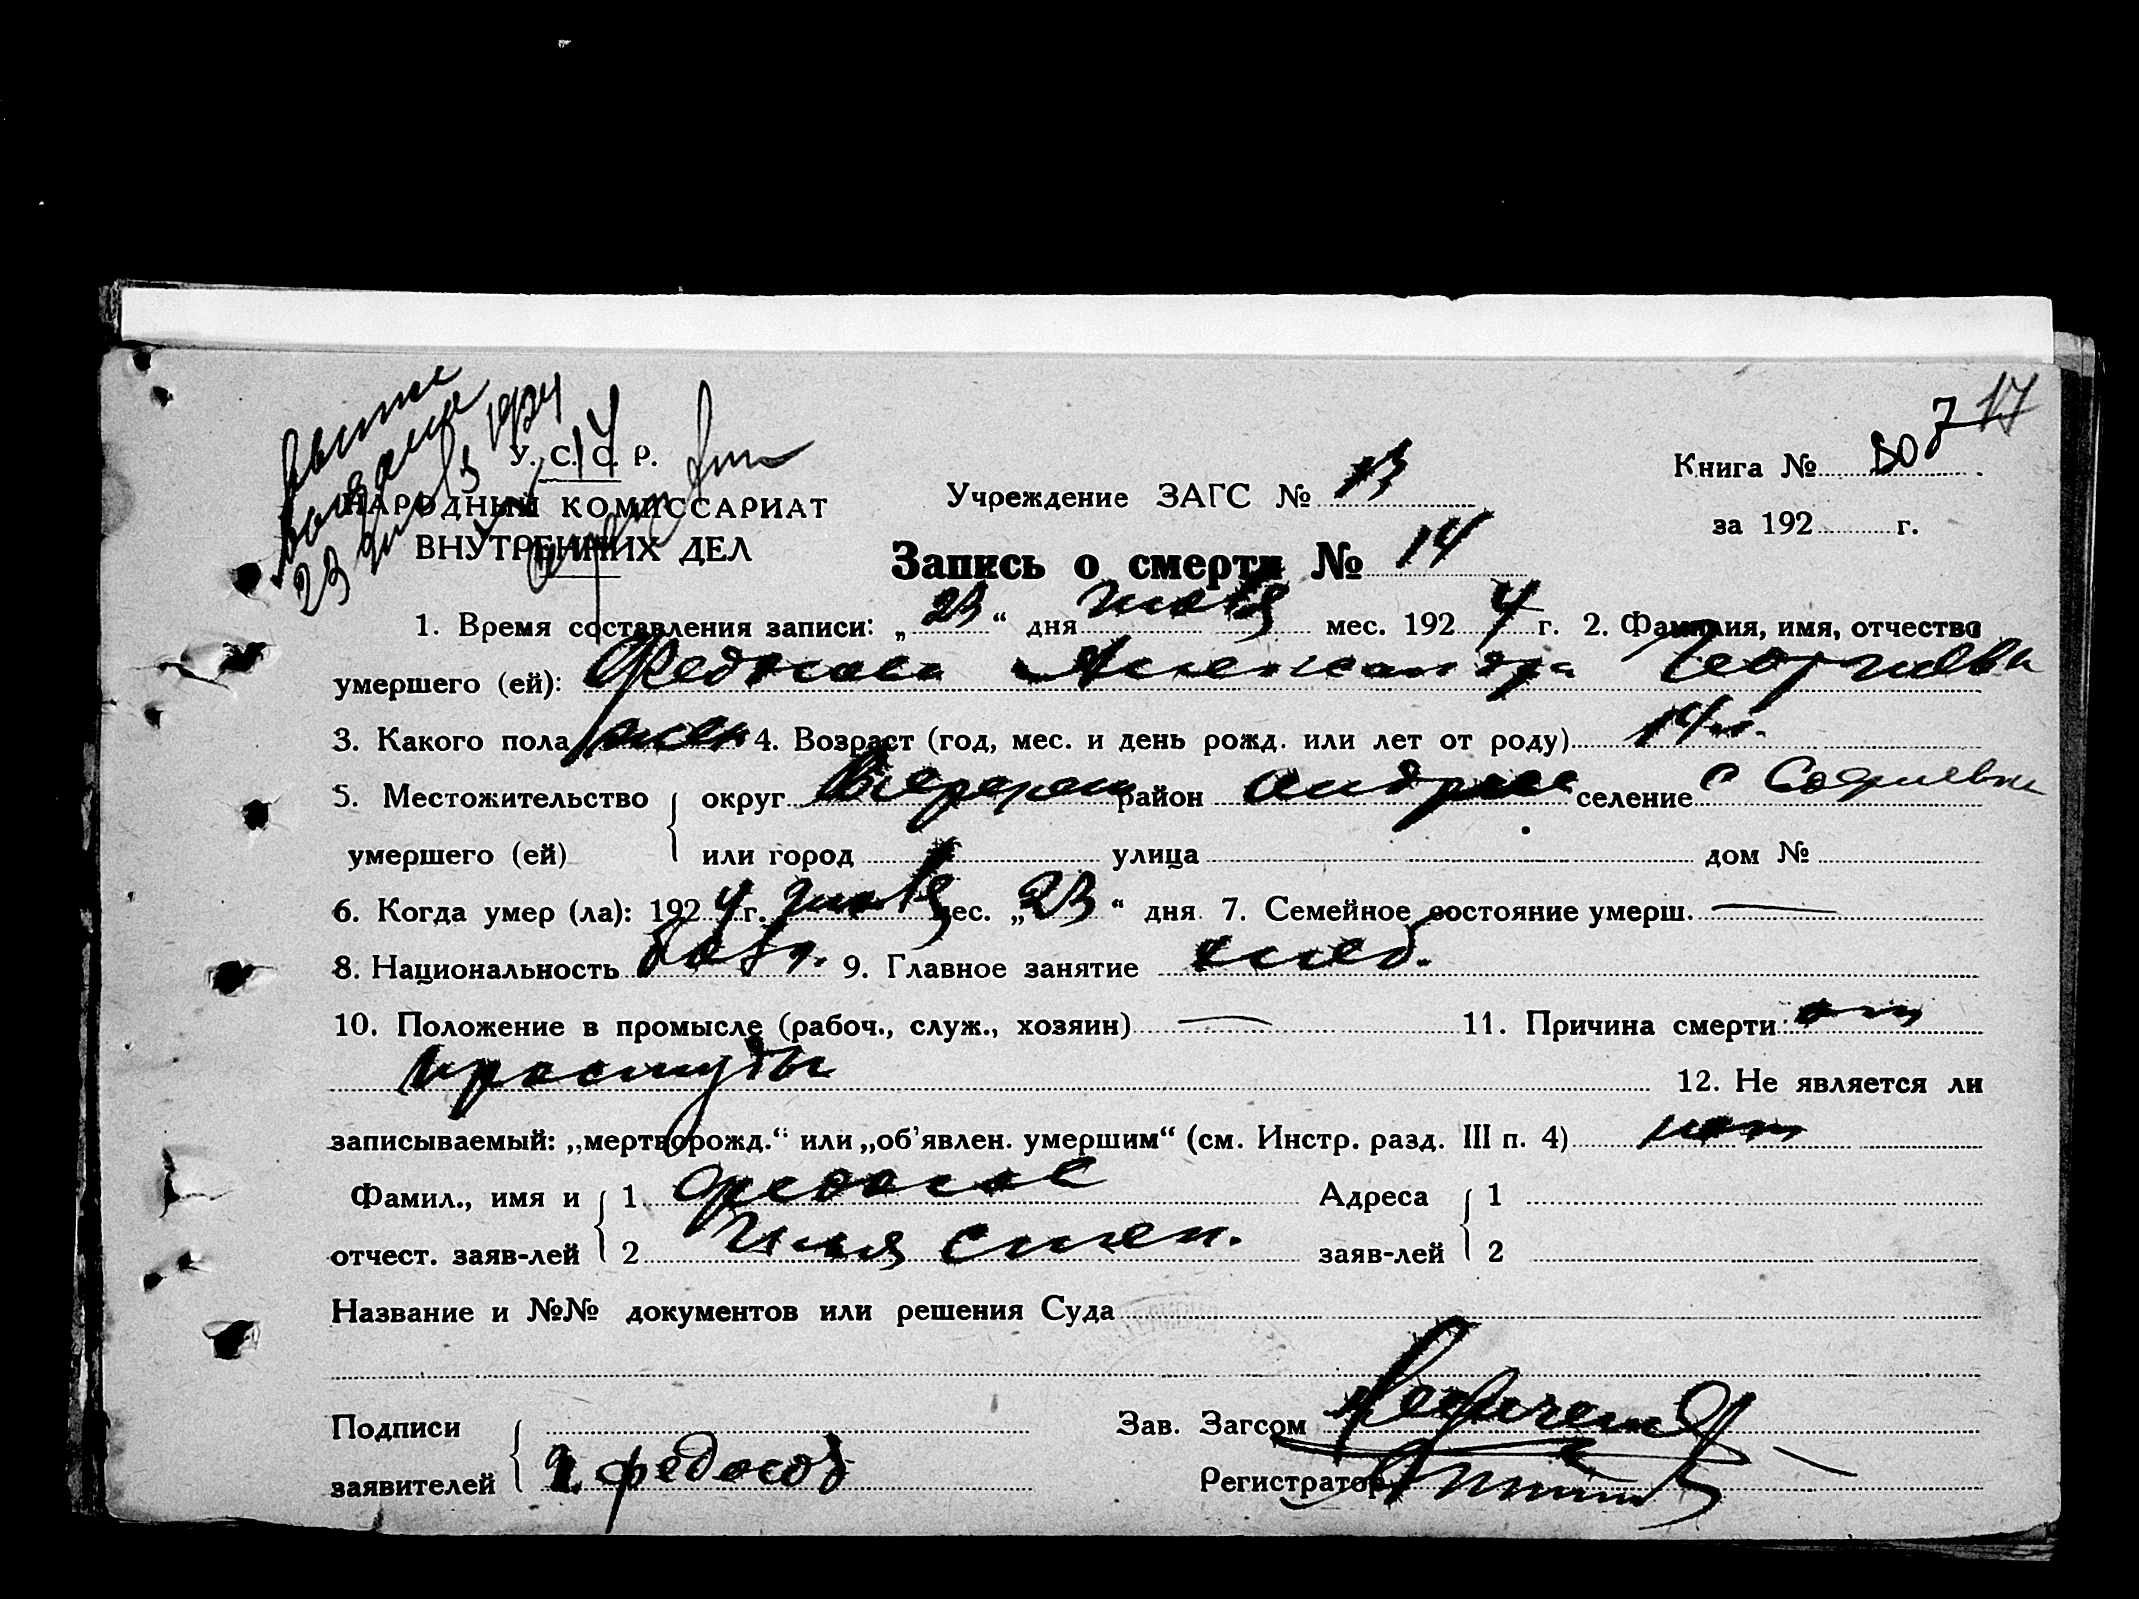 7 17
У. С. С. Р.
НАРОДНЫЙ КОМИССАРИАТ
ВНУТРЕННИХ ДЕЛ
23 1924
Учреждение ЗАГС № 13
Книга №
за 192 г.
Запись о смерти № 14
1. Время составления записи: „23“ дня июля мес. 1924 г. 2. Фамилия, имя, отчество
умершего (ей): Федосова Александра Георгиева
3. Какого пола жен 4. Возраст (год, мес. и день рожд. или лет от роду) 14
5. Местожительство округ район Андреев селение с Софиевки
умершего (ей) или город улица дом №
6. Когда умер (ла): 1924 г. июля мес. „23“ дня 7. Семейное состояние умерш. —
8. Национальность 9. Главное занятие хлеб.
10. Положение в промысле (рабоч., служ., хозяин) — 11. Причина смерти: от
простуды 12. Не является ли
записываемый: „мертворожд.“ или „об'явлен. умершим“ (см. Инстр. разд. III п. 4) нет
Фамил., имя и 1 Федосов Адреса 1
отчест. заяв-лей 2 Илья Степ. заяв-лей 2
Название и №№ документов или решения Суда
Подписи Зав. Загсом
заявителей Федосов Регистратор